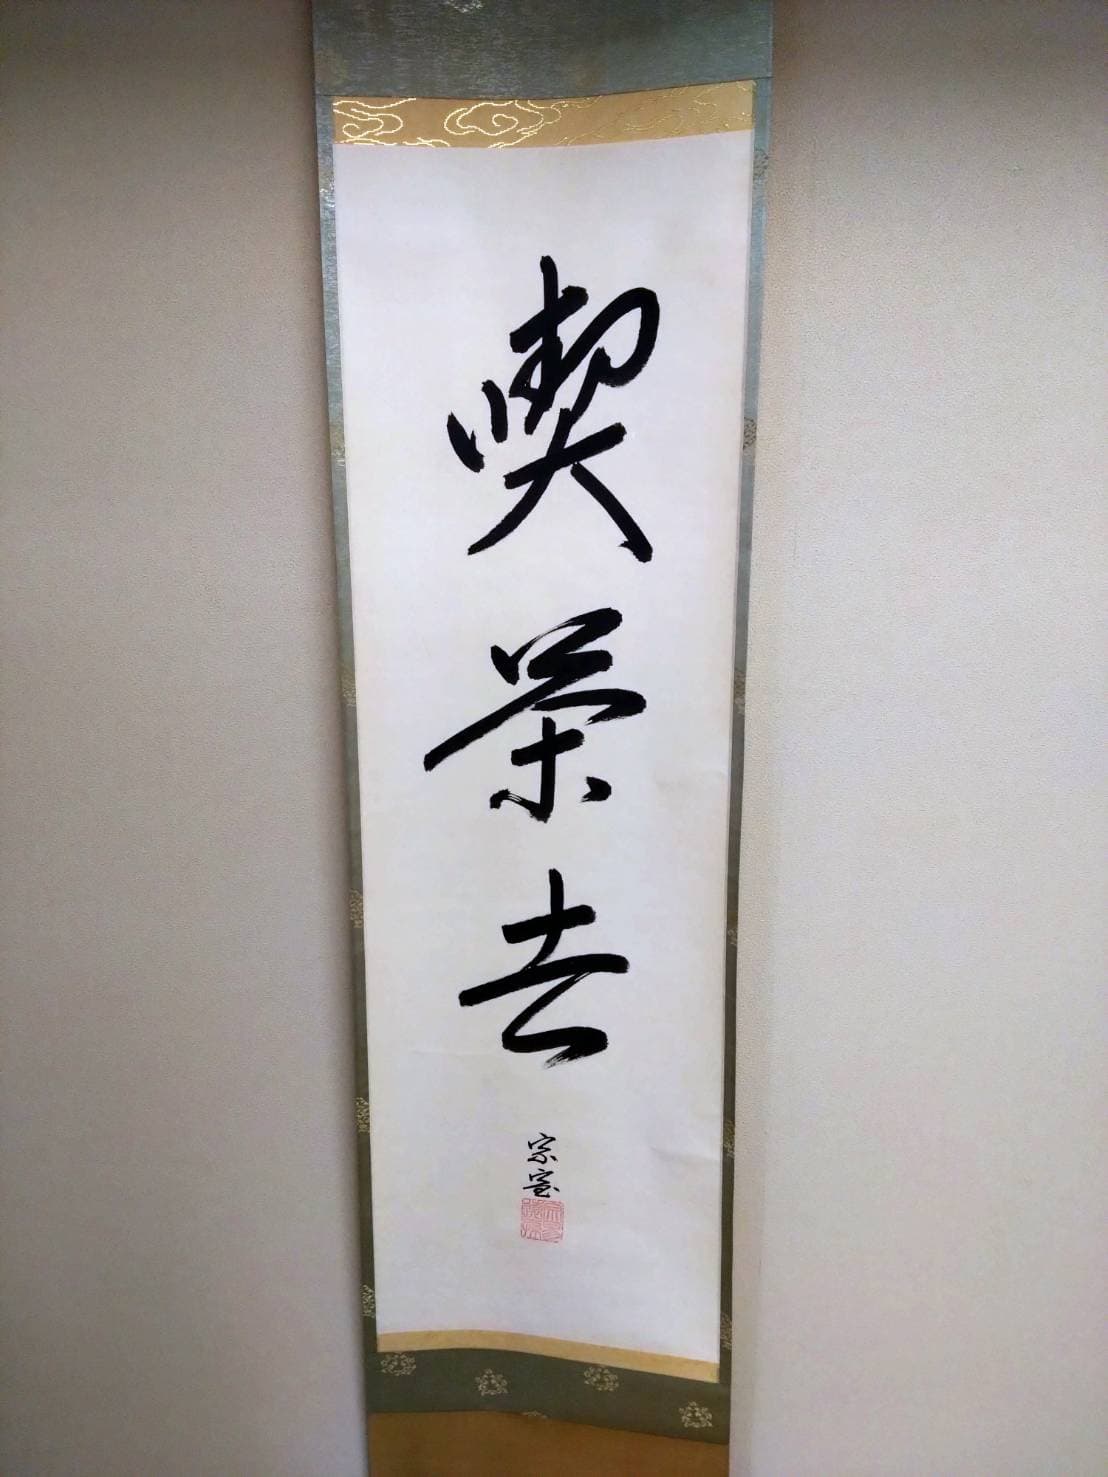 喫茶去
宗室